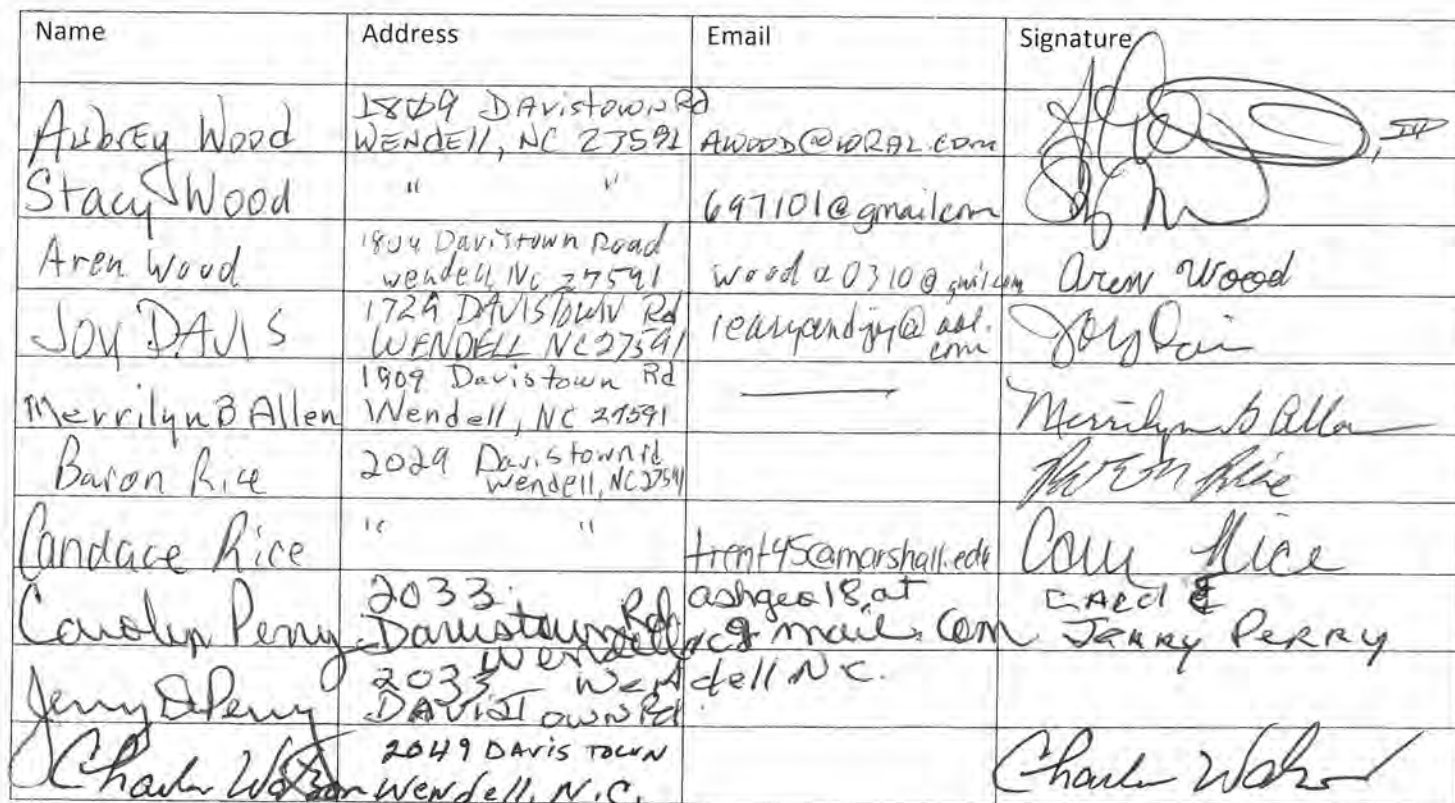 Name Address Email Signature
Aubrey Wood 1809 Davistown Rd
Wendell, NC 27591 AWOOD@WRAL.com , IV
Stacy Wood " " 697101@gmail.com
Aren Wood 1804 Davistown Road
Wendell, NC 27591 wooda0310@gmail.com Aren Wood
JOY DAVIS 1729 DAVISTOWN Rd
WENDELL NC 27591 @aol.
com Joy Davis
Merrilyn B Allen 1909 Davistown Rd
Wendell, NC 27591 — Merrilyn B Allen
Baron Rice 2029 Davistown rd
Wendell, NC 27591 Rice
Candace Rice " " trent45@marshall.edu Rice
Carolyn Perry 2033 Davistown Rd
Wendell NC ashgea18 at
gmail. com CAROL &
JERRY PERRY
Jerry D Perry 2033 Wendell N.C.
DAVISTOWN Rd.
Charles Watson 2049 DAVIS TOWN
Wendell, N.C. Charles Watson